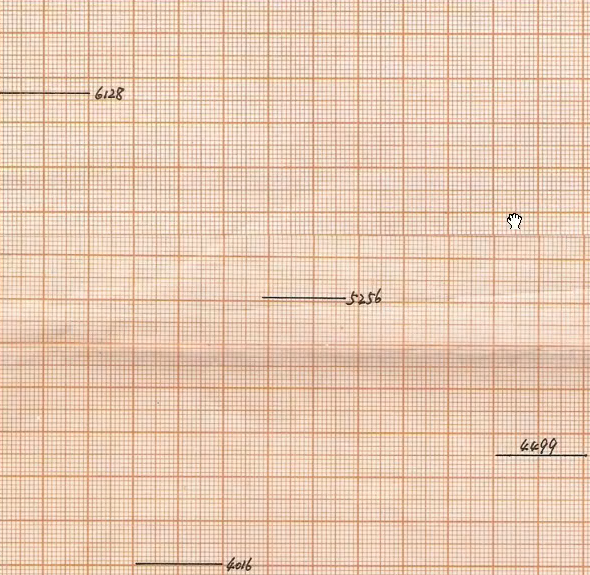 6128
5256
4499
4016